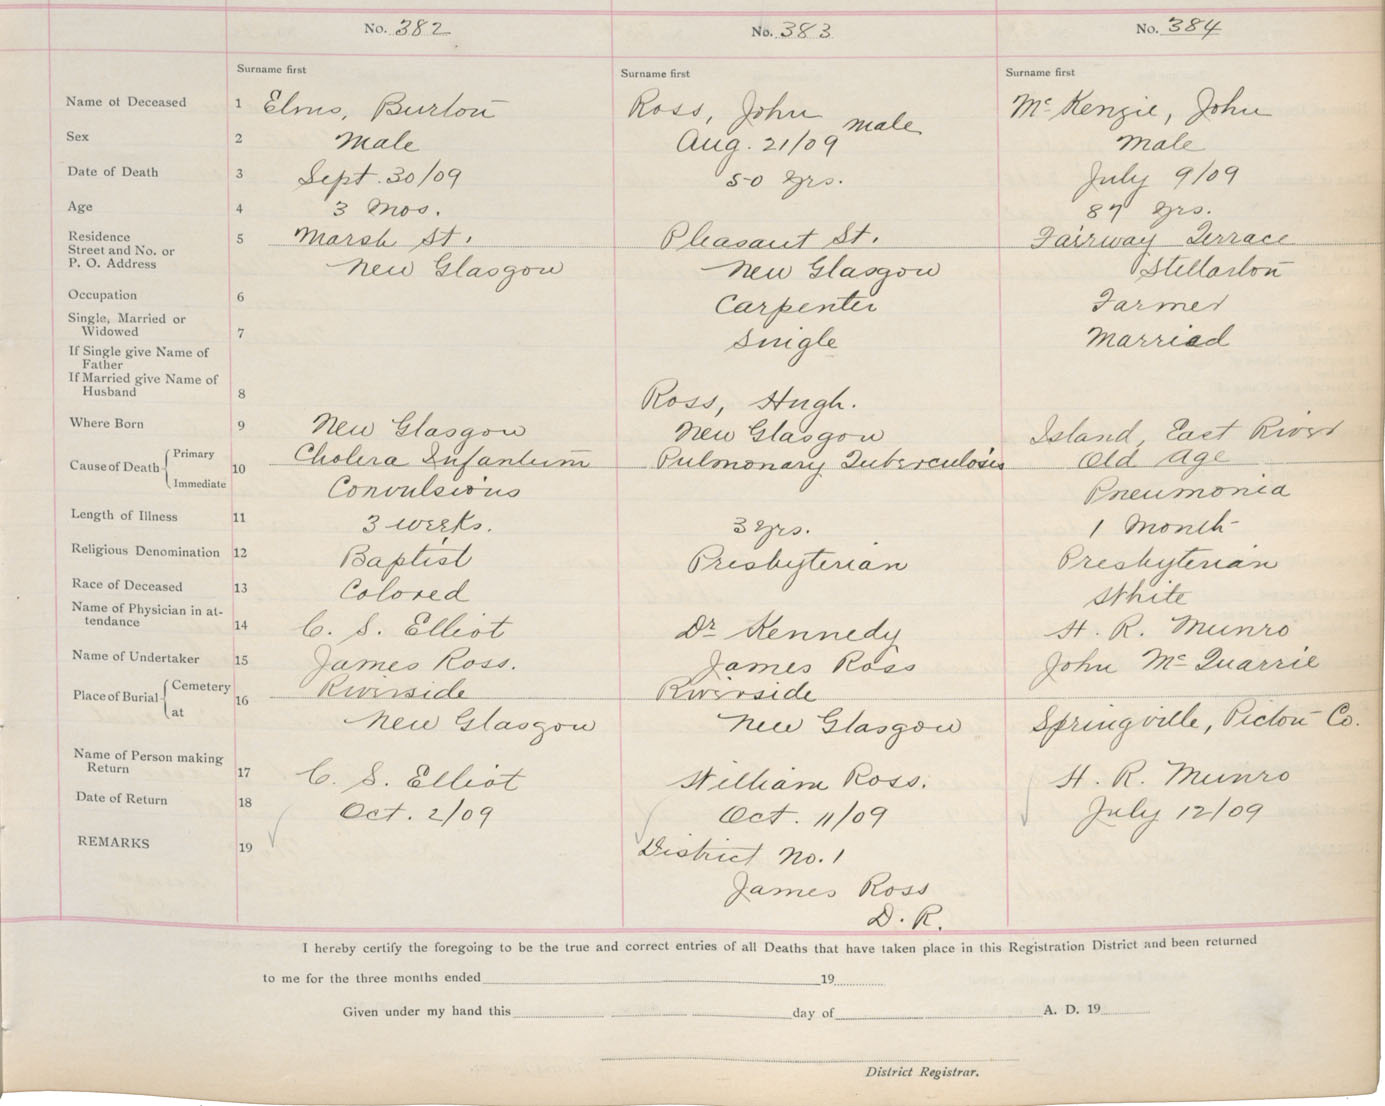 No. 382 No. 383 No. 384
Surname first Surname first Surname first
Name of Deceased 1 Elms, Burton Ross, John male Mc Kenzie, John
Sex 2 Male Aug. 21/09 Male
Date of Death 3 Sept. 30/09 50 yrs. July 9/09
Age 4 3 Mos. 87 yrs.
Residence 5 Marsh St. Pleasant St. Fairway Terrace
Street and No. or
P. O. Address New Glasgow New Glasgow Stellarton
Occupation 6 Carpenter Farmer
Single, Married or
Widowed 7 Single Married
If Single give Name of
Father
If Married give Name of
Husband 8 Ross, Hugh.
Where Born 9 New Glasgow New Glasgow Island, East River
Cause of Death Primary 10 Cholera Infantum Pulmonary Tuberculosis Old Age
Immediate Convulsions Pneumonia
Length of Illness 11 3 weeks. 3 yrs. 1 Month
Religious Denomination 12 Baptist Presbyterian Presbyterian
Race of Deceased 13 Colored White
Name of Physician in at-
tendance 14 C. S. Elliot Dr Kennedy H. R. Munro
Name of Undertaker 15 James Ross. James Ross John Mc Quarrie
Place of Burial Cemetery 16 Riverside Riverside
at New Glasgow New Glasgow Springville, Pictou Co.
Name of Person making
Return 17 C. S. Elliot William Ross. H. R. Munro
Date of Return 18 Oct. 2/09 Oct. 11/09 July 12/09
REMARKS 19 District No. 1
James Ross
D. R.
I hereby certify the foregoing to be the true and correct entries of all Deaths that have taken place in this Registration District and been returned
to me for the three months ended 19
Given under my hand this day of A. D. 19
District Registrar.